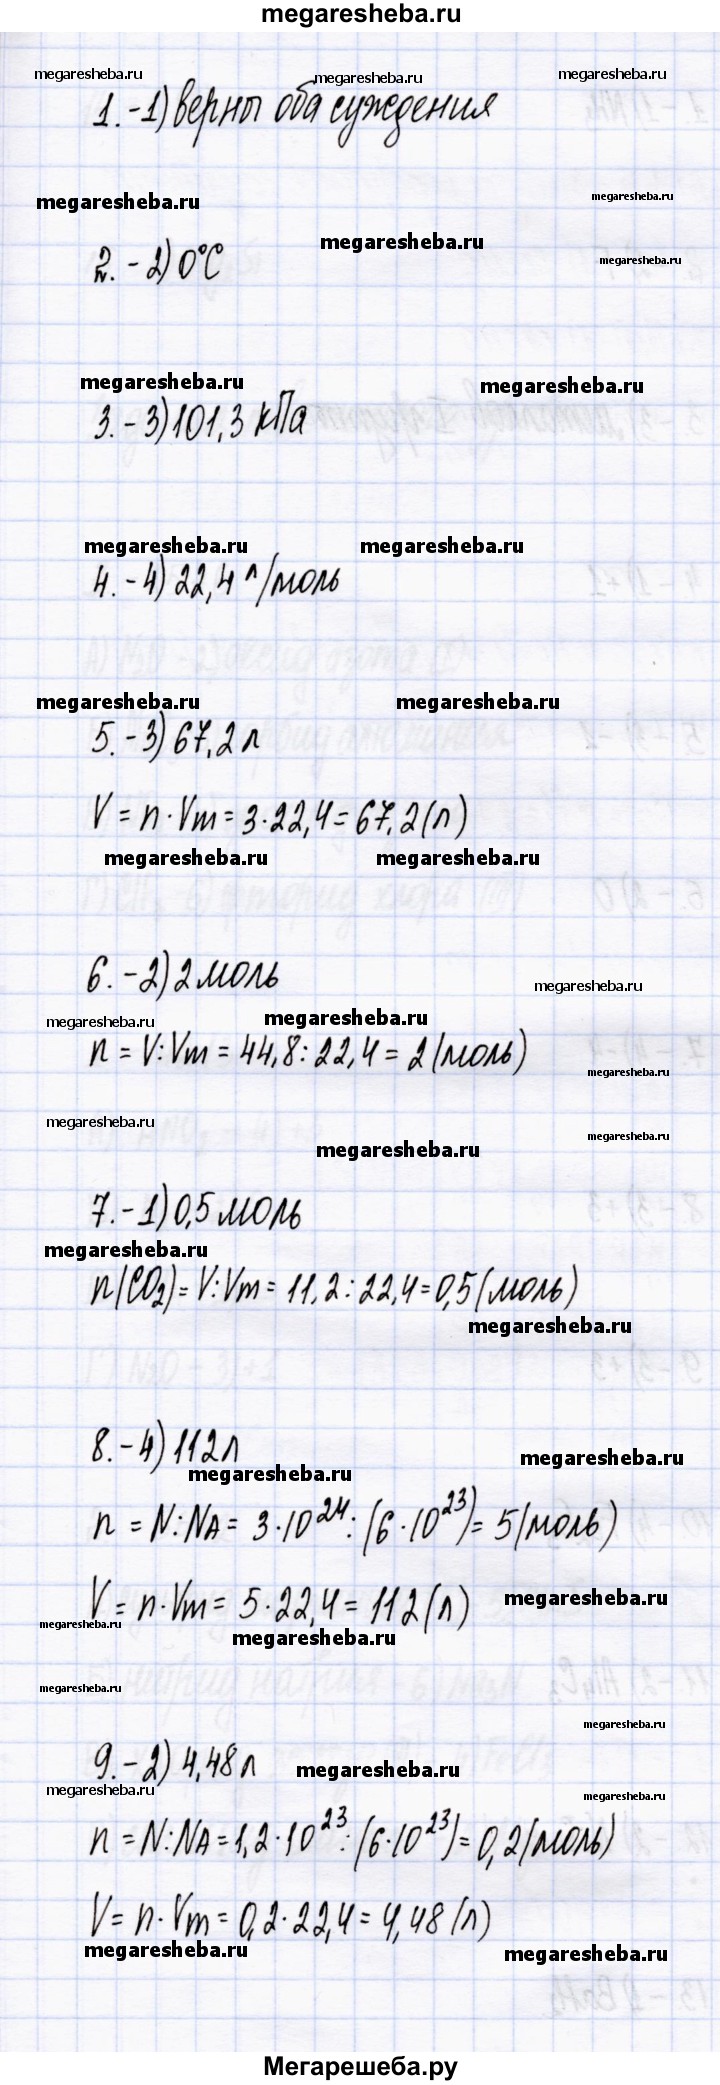 megaresheba.ru
megaresheba.ru megaresheba.ru megaresheba.ru
1.-1) верны оба суждения
megaresheba.ru megaresheba.ru
megaresheba.ru
2.-2) 0°C
megaresheba.ru
megaresheba.ru megaresheba.ru
3.-3) 101,3 кПа
megaresheba.ru megaresheba.ru
4.-4) 22,4 л/моль
megaresheba.ru megaresheba.ru
5.-3) 67,2 л
V = n · Vm = 3·22,4 = 67,2 (л)
megaresheba.ru megaresheba.ru
6.-2) 2 моль
megaresheba.ru
megaresheba.ru megaresheba.ru
n = V:Vm = 44,8:22,4 = 2 (моль)
megaresheba.ru
megaresheba.ru
megaresheba.ru
megaresheba.ru
7.-1) 0,5 моль
megaresheba.ru
n(CO₂) = V:Vm = 11,2:22,4 = 0,5 (моль)
megaresheba.ru
8.-4) 112 л
megaresheba.ru
megaresheba.ru
n = N:NA = 3·10²⁴:(6·10²³) = 5 (моль)
V = n·Vm = 5·22,4 = 112 (л)
megaresheba.ru
megaresheba.ru
megaresheba.ru
megaresheba.ru
megaresheba.ru
9.-2) 4,48 л
megaresheba.ru
megaresheba.ru
megaresheba.ru
n = N:NA = 1,2·10²³:(6·10²³) = 0,2 (моль)
V = n·Vm = 0,2·22,4 = 4,48 (л)
megaresheba.ru megaresheba.ru
Мегарешеба.ру